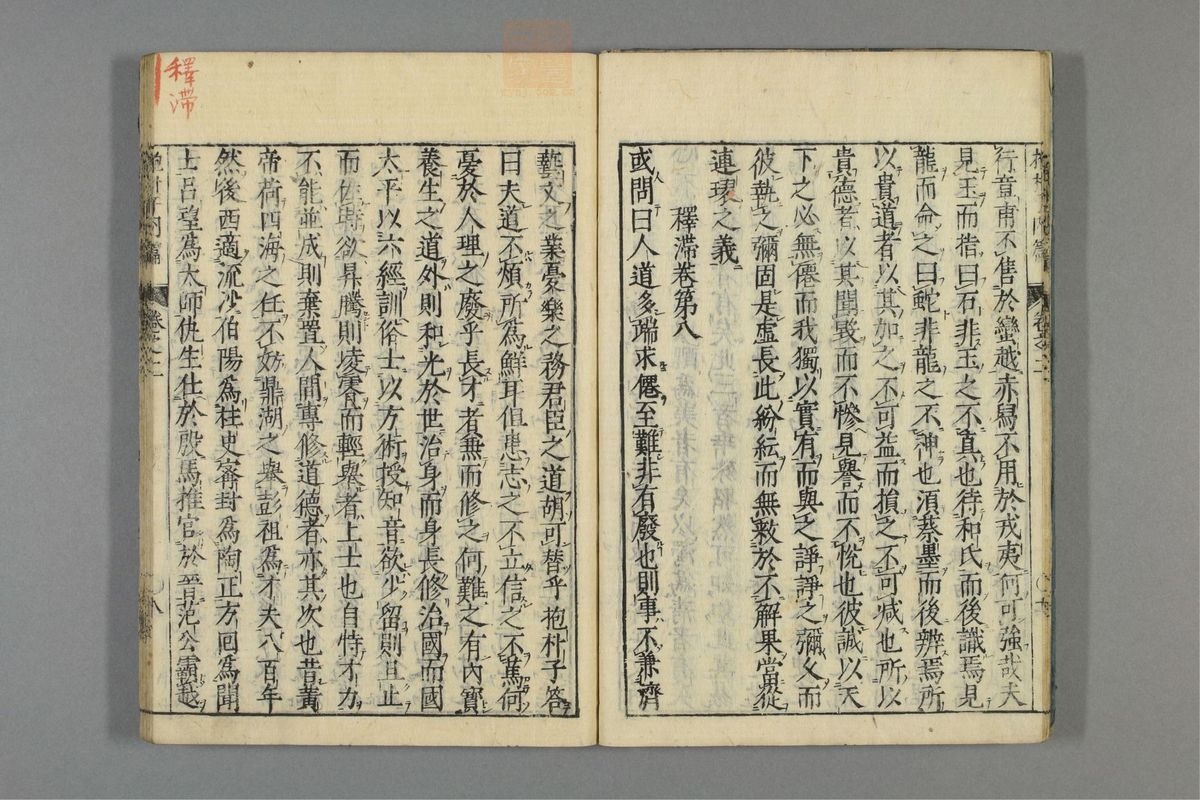 行章甫不售於蠻越赤舄不用於戎夷何可強哉夫
見玉而指曰石非玉之不真也待和氏而後識焉見
龍而命之曰蛇非龍之不神也須蔡墨而後辨焉所
以貴道者以其加之不可益而損之不可減也所以
貴德者以其聞毀而不慘見譽而不悅也彼誠以天
下之必無僊而我獨以實有而與之諍諍之彌久而
彼執之彌固是虛長此紛紜而無救於不解果當從
連環之義
釋滯卷第八
或問曰人道多端求僊至難非有廢也則事不兼濟
藝文之業憂樂之務君臣之道胡可替乎抱朴子答
曰夫道不煩所為鮮耳但患志之不立信之不篤何
憂於人理之廢乎長才者無而修之何難之有內寶
養生之道外則和光於世治身而身長修治國而國
太平以六經訓俗士以方術授知音欲少留則且止
而佐時欲昇騰則凌霄而輕舉者上士也自恃才力
不能並成則棄置人間專修道德者亦其次也昔黃
帝荷四海之任不妨鼎湖之舉彭祖為才夫八百年
然後西適流沙伯陽為柱史甯封為陶正方回為閭
士呂望為太師仇生仕於殷馬推官於晉范公霸越
釋滯